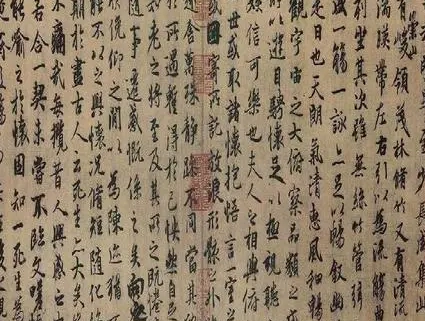 至少長咸集
有崇山峻領茂林脩竹又有清流
湍暎帶左右引以為流觴曲
坐其次雖無絲竹管弦
盛一觴一詠亦足以暢敘幽
是日也天朗氣清惠風和暢
觀宇宙之大俯察品類之
所以遊目騁懷足以極視聽
娛信可樂也夫人之相與俯
世或取諸懷抱悟言一室之
或因寄所託放浪形骸之外
趣舍萬殊靜躁不同當其
於所遇暫得於己怏然自
知老之將至及其所之既惓
隨事遷感慨係之矣向之
欣俛仰之閒以為陳迹猶
能不以之興懷況脩短隨化
期於盡古人云死生亦大矣
不痛哉每攬昔人興感之
若合一契未嘗不臨文嗟
之於懷固知一死生為